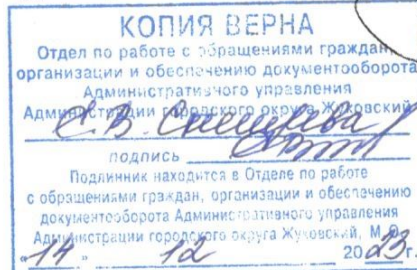 КОПИЯ ВЕРНА
Отдел по работе с обращениями граждан,
организации и обеспечению документооборота
Административного управления
Администрации городского округа Жуковский
С.В.
подпись
Подлинник находится в Отделе по работе
с обращениями граждан, организации и обеспечению
документооборота Административного управления
Администрации городского округа Жуковский, М.О.
«14» 12 2023.